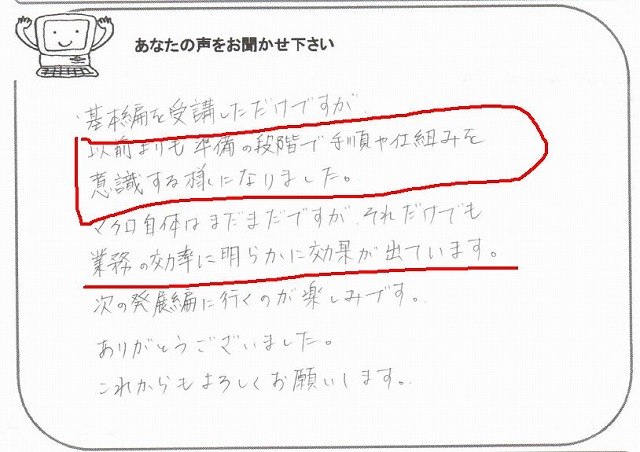 あなたの声をお聞かせ下さい
・基本編を受講しただけですが、
以前よりも準備の段階で手順や仕組みを
意識する様になりました。
マクロ自体はまだまだですが、それだけでも
業務の効率に明らかに効果が出ています。
次の発展編に行くのが楽しみです。
ありがとうございました。
これからもよろしくお願いします。